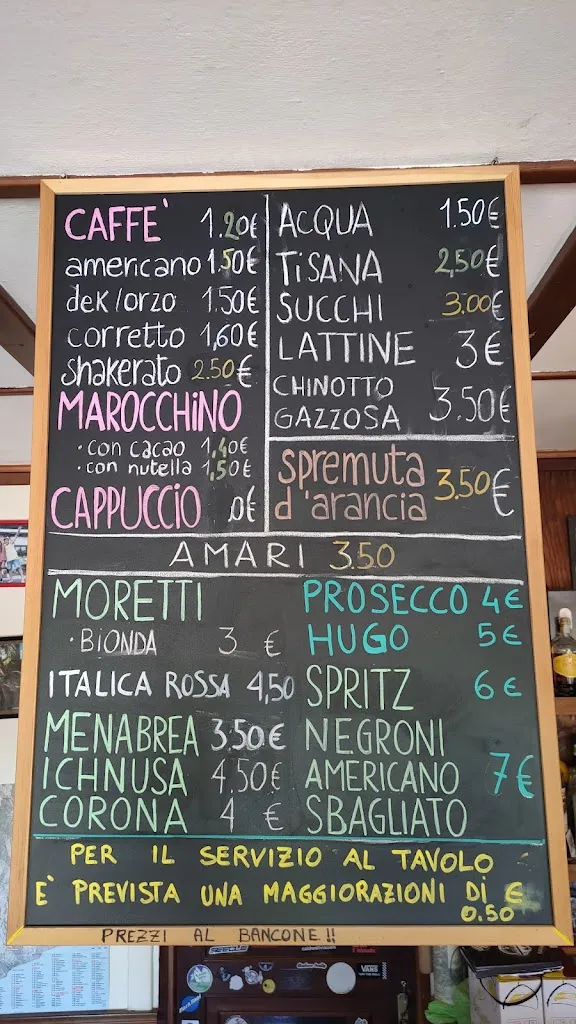 CAFFE` 1.20€
americano 1.50€
dek/orzo 1.50€
corretto 1,60€
shakerato 2.50€
MAROCCHiNO
• con cacao 1,40€
• con nutella 1,50€
CAPPUCCiO 0€
ACQUA 1.50€
TiSANA 2,50€
SUCCHI 3.00€
LATTINE 3€
CHINOTTO
GAZZOSA 3.50€
spremuta
d'arancia 3.50€
AMARI 3.50
MORETTI
• BIONDA 3 €
ITALICA ROSSA 4,50
MENABREA 3.50€
ICHNUSA 4.50€
CORONA 4 €
PROSECCO 4€
HUGO 5€
SPRITZ 6€
NEGRONI
AMERICANO 7€
SBAGLIATO
PER IL SERVIZIO AL TAVOLO
E` PREVISTA UNA MAGGIORAZIONI Di €
0.50
PREZZI AL BANCONE!!
VANS